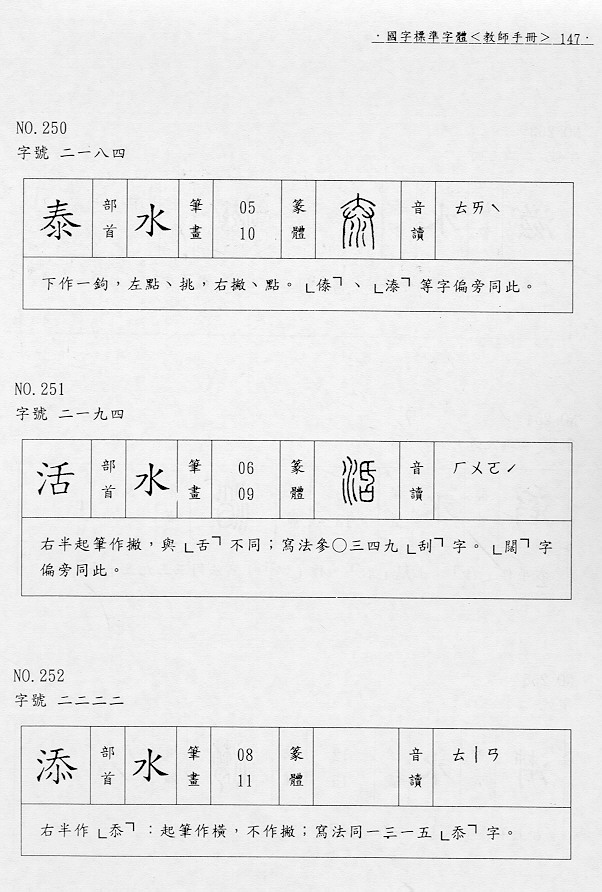 ·國字標準字體＜教師手冊＞ 147·
NO.250
字號 二一八四
泰 部首 水 筆畫 05 10 篆體 音讀 ㄊㄞˋ
下作一鉤，左點、挑，右撇、點。「傣」、「漆」等字偏旁同此。
NO.251
字號 二一九四
活 部首 水 筆畫 06 09 篆體 音讀 ㄏㄨㄛˊ
右半起筆作撇，與「舌」不同；寫法參○三四九「刮」字。「闊」字
偏旁同此。
NO.252
字號 二二二二
添 部首 水 筆畫 08 11 篆體 音讀 ㄊㄧㄢ
右半作「忝」：起筆作橫，不作撇；寫法同一三一五「忝」字。